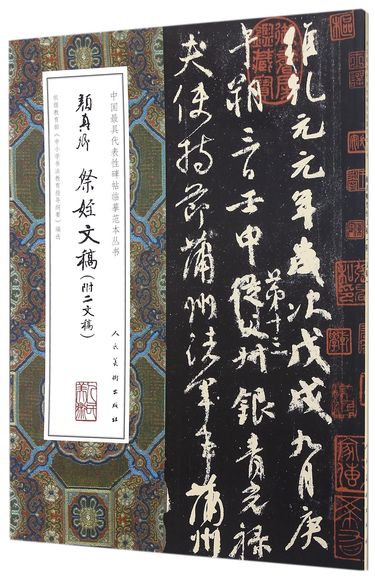 中国最具代表性碑帖临摹范本丛书
顏真卿 祭姪文稿(附二文稿)
依据教育部《中小学书法教育指导纲要》编选
人民美術出版社
維乾元元年歲次戊戌九月庚
午朔三日壬申第十三從父叔銀青光祿
夫使持節蒲州諸軍事蒲州